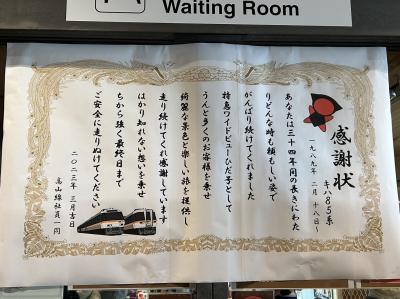 Waiting Room
感謝状
キハ85系
一九八九年 二月 十八日～
あなたは三十四年間の長きにわた
りどんな時も頼もしい姿で
がんばり続けてくれました
特急ワイドビューひだ子として
うんと多くのお客様を乗せ
綺麗な景色と楽しい旅を提供し
走り続けてくれ感謝しています
はかり知れない想いを乗せ
ちから強く最終日まで
ご安全に走りぬけてください
二〇二三年 三月吉日
高山線社員一同